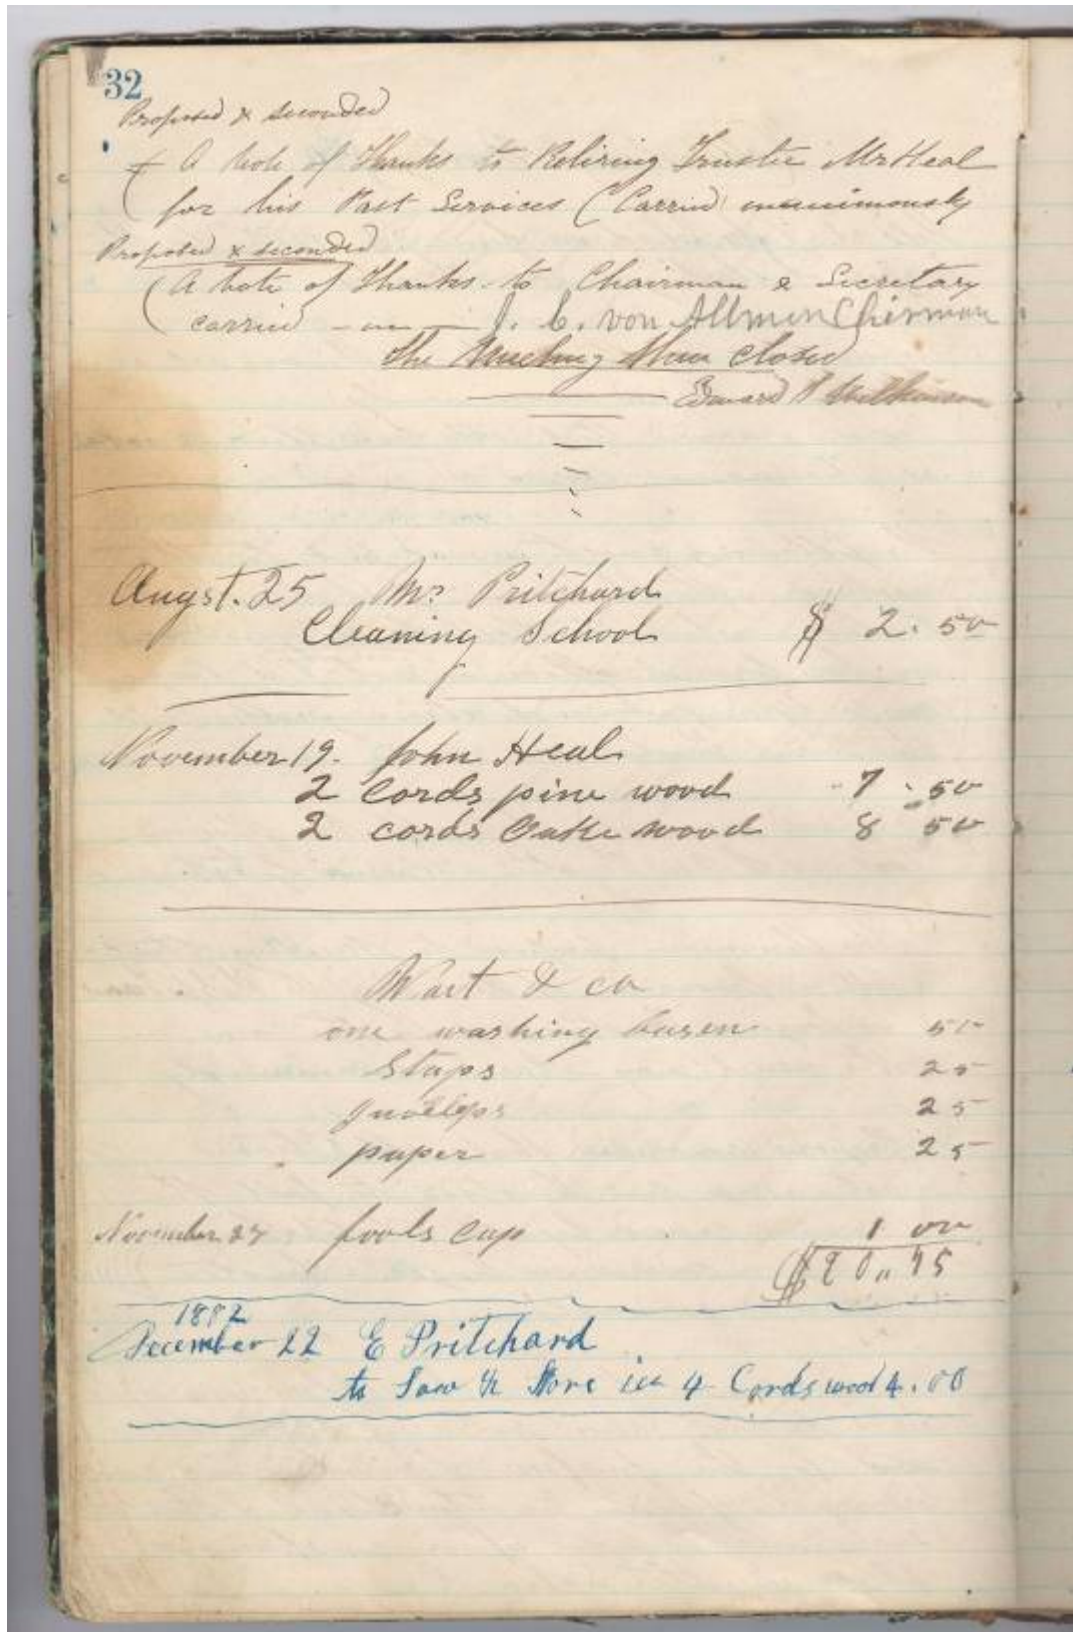 32
Proposed & seconded
A Vote of Thanks to Retiring Trustee Mr Heal
for his Past Services (Carried unanimously
Proposed & seconded
(A Vote of Thanks to Chairman & Secretary
carried J. C. von Allmen Chirman
the Meeting then closed
Edward Wilkinson
Augst. 25 Mr Pritchard
Cleaning School $ 2.50
November 19. John Heal
2 cords pine wood 7.50
2 cords Oake wood 8 50
Wait & co
one washing basen 50
Staps 25
25
paper 25
November 27 fools cap 1 00
$20,,75
1892
December 22 E Pritchard
to Saw & Store in 4 Cords wood 4.00